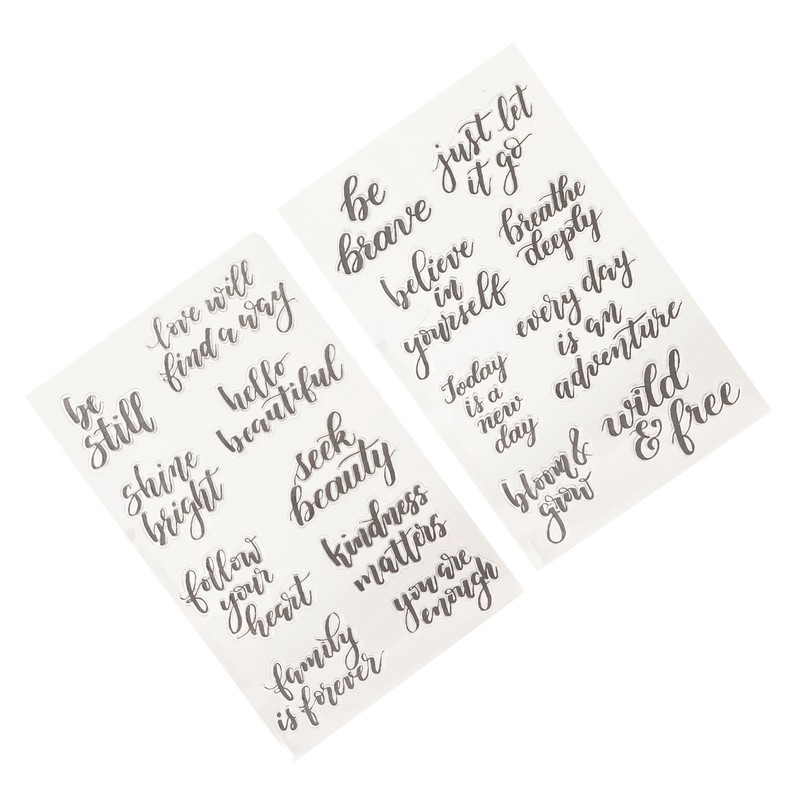 love will
find a way
be
still
hello
beautiful
shine
bright
seek
beauty
follow
your
heart
kindness
matters
you are
enough
family
is forever
just let
it go
be
brave
breathe
deeply
believe
in
yourself
every day
is an
adventure
Today
is a
new
day
wild
& free
bloom &
grow